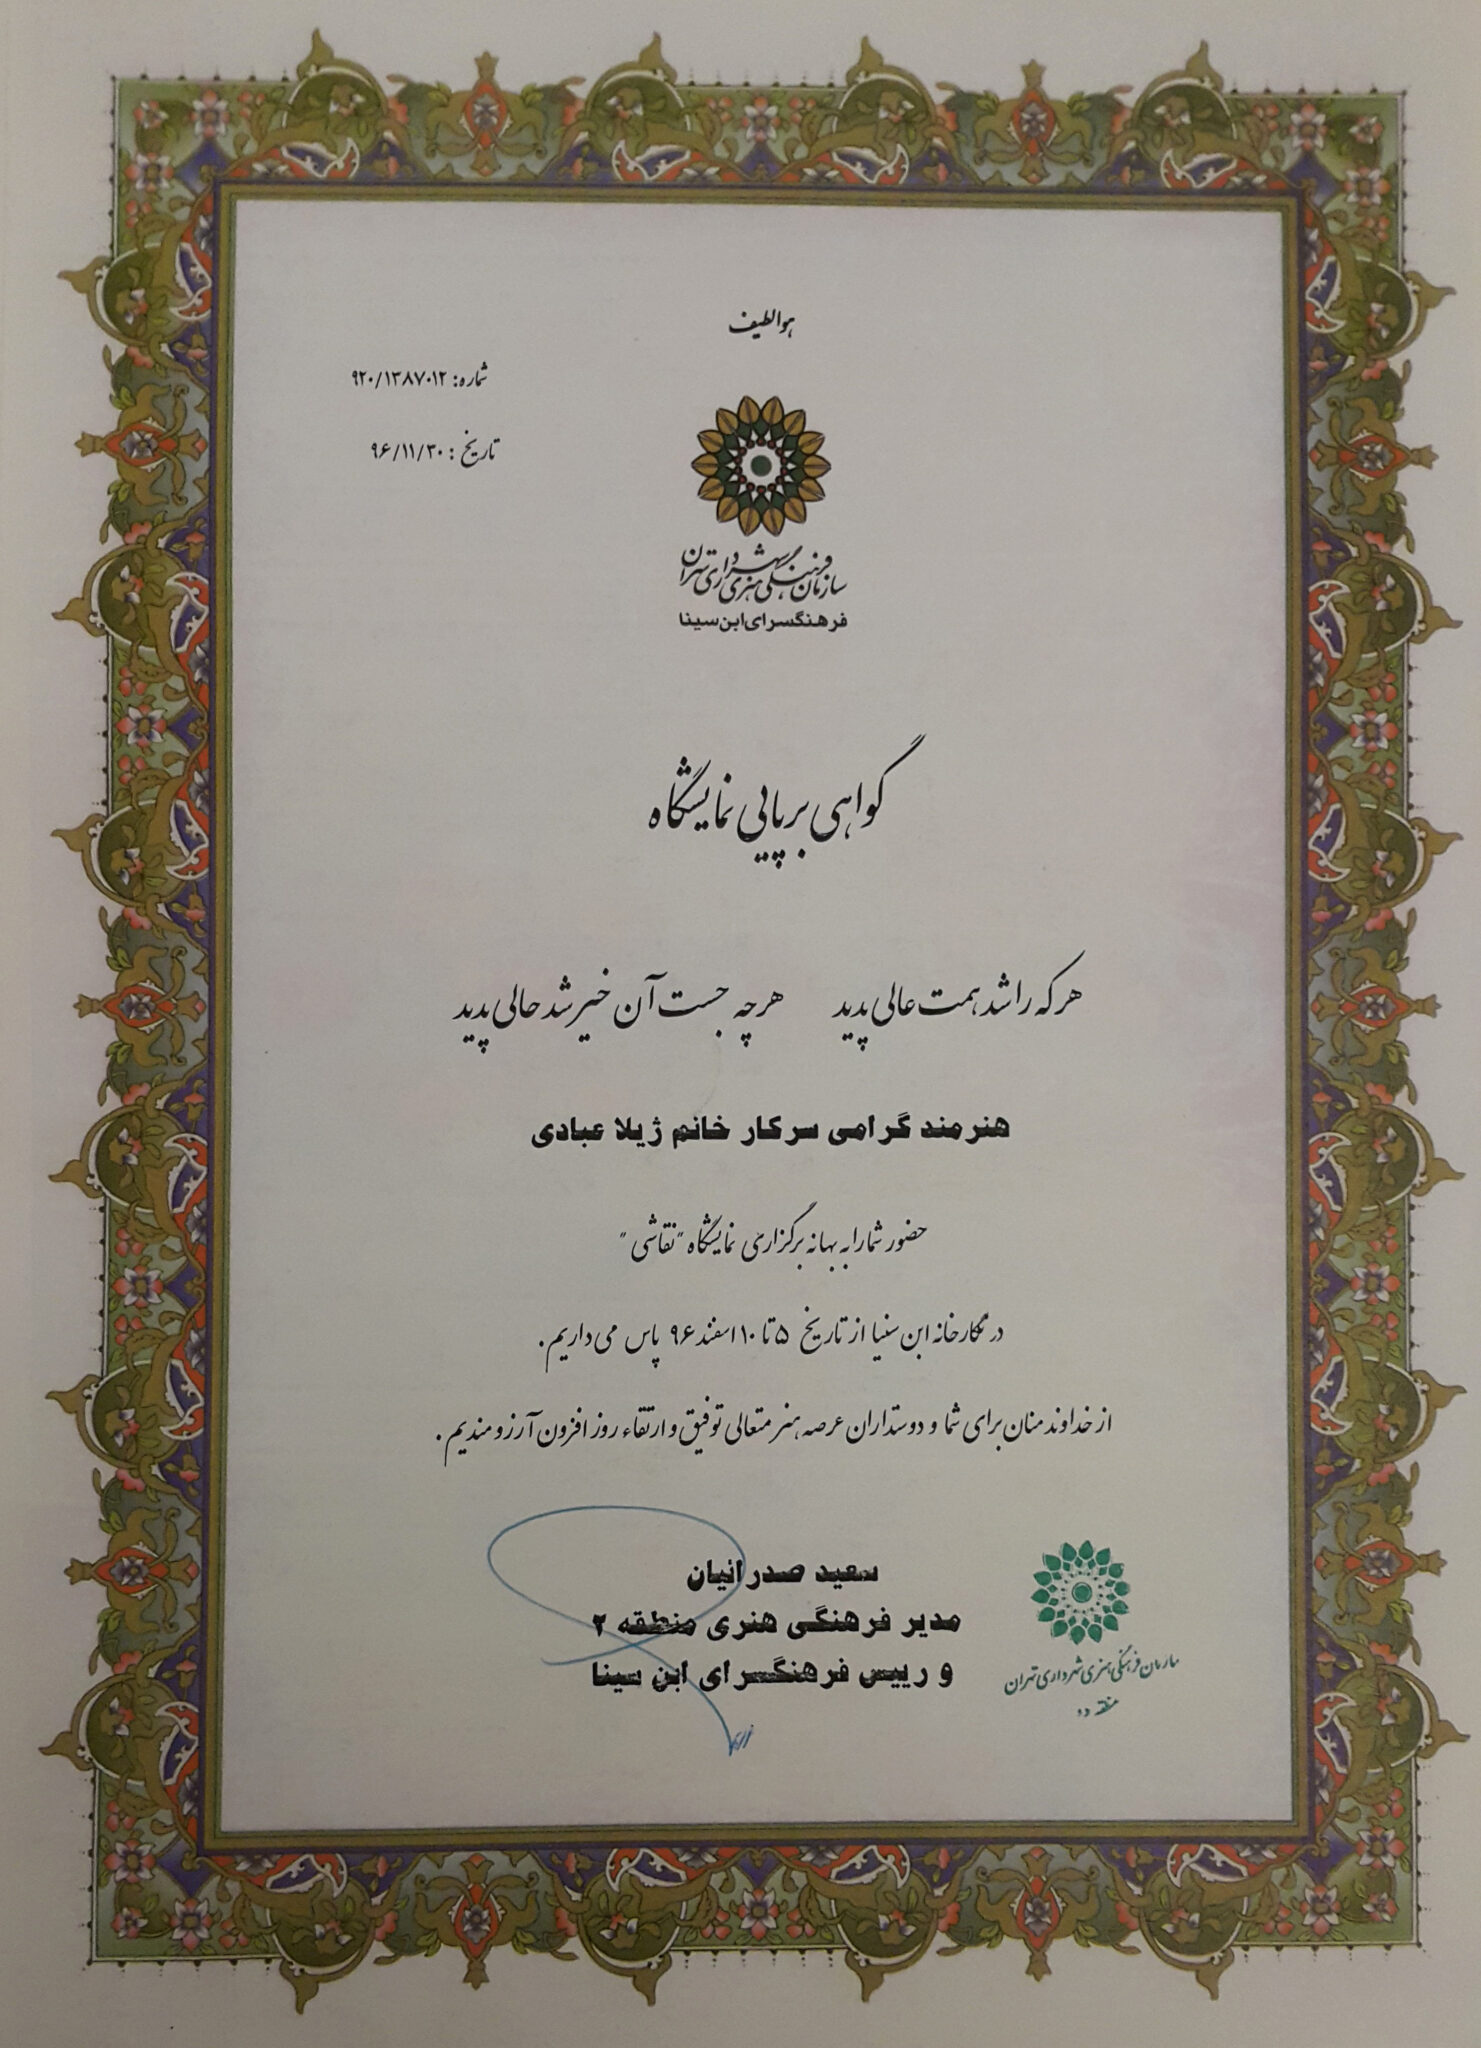 هوالطیف
شماره: ۹۲۰/۱۳۸۷۰۱۲
تاریخ: ۹۶/۱۱/۳۰
سازمان فرهنگی هنری شهرداری تهران
فرهنگسرای ابن سینا
گواهی برپایی نمایشگاه
هر که را شد همت عالی پدید هر چه جست آن خیر شد حالی پدید
هنرمند گرامی سرکار خانم ژیلا عبادی
حضور شما را به بهانه برگزاری نمایشگاه "نقاشی"
در نگارخانه ابن سنیا از تاریخ ۵ تا ۱۰ اسفند ۹۶ پاس می داریم.
از خداوند منان برای شما و دوستداران عرصه هنر متعالی توفیق و ارتقاء روز افزون آرزومندیم.
سعید صدرائیان
مدیر فرهنگی هنری منطقه ۲
و رییس فرهنگسرای ابن سینا
سازمان فرهنگی هنری شهرداری تهران
منطقه دو